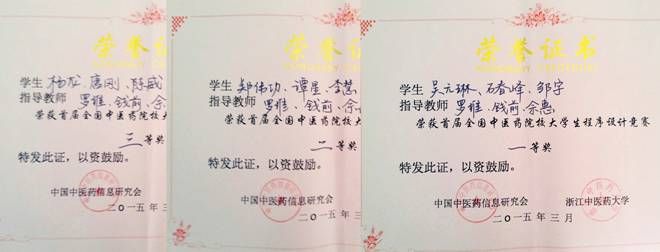 荣誉证
学生 杨龙、唐刚、陈威
指导教师 罗维、钱前、余
荣获首届全国中医药院校大
三等奖
特发此证，以资鼓励。
中国中医药信息研究会
二〇一五年三
荣誉证
学生 郑伟功、谭星、李慧
指导教师 罗维、钱前、余
荣获首届全国中医药院校大
二等奖
特发此证，以资鼓励。
中国中医药信息研究会
二〇一五年三
荣誉证书
学生 吴元琳、石春峰、邹宇
指导教师 罗维、钱前、余惠
荣获首届全国中医药院校大学生程序设计竞赛
一等奖
特发此证，以资鼓励。
中国中医药信息研究会 浙江中医药大学
二〇一五年三月